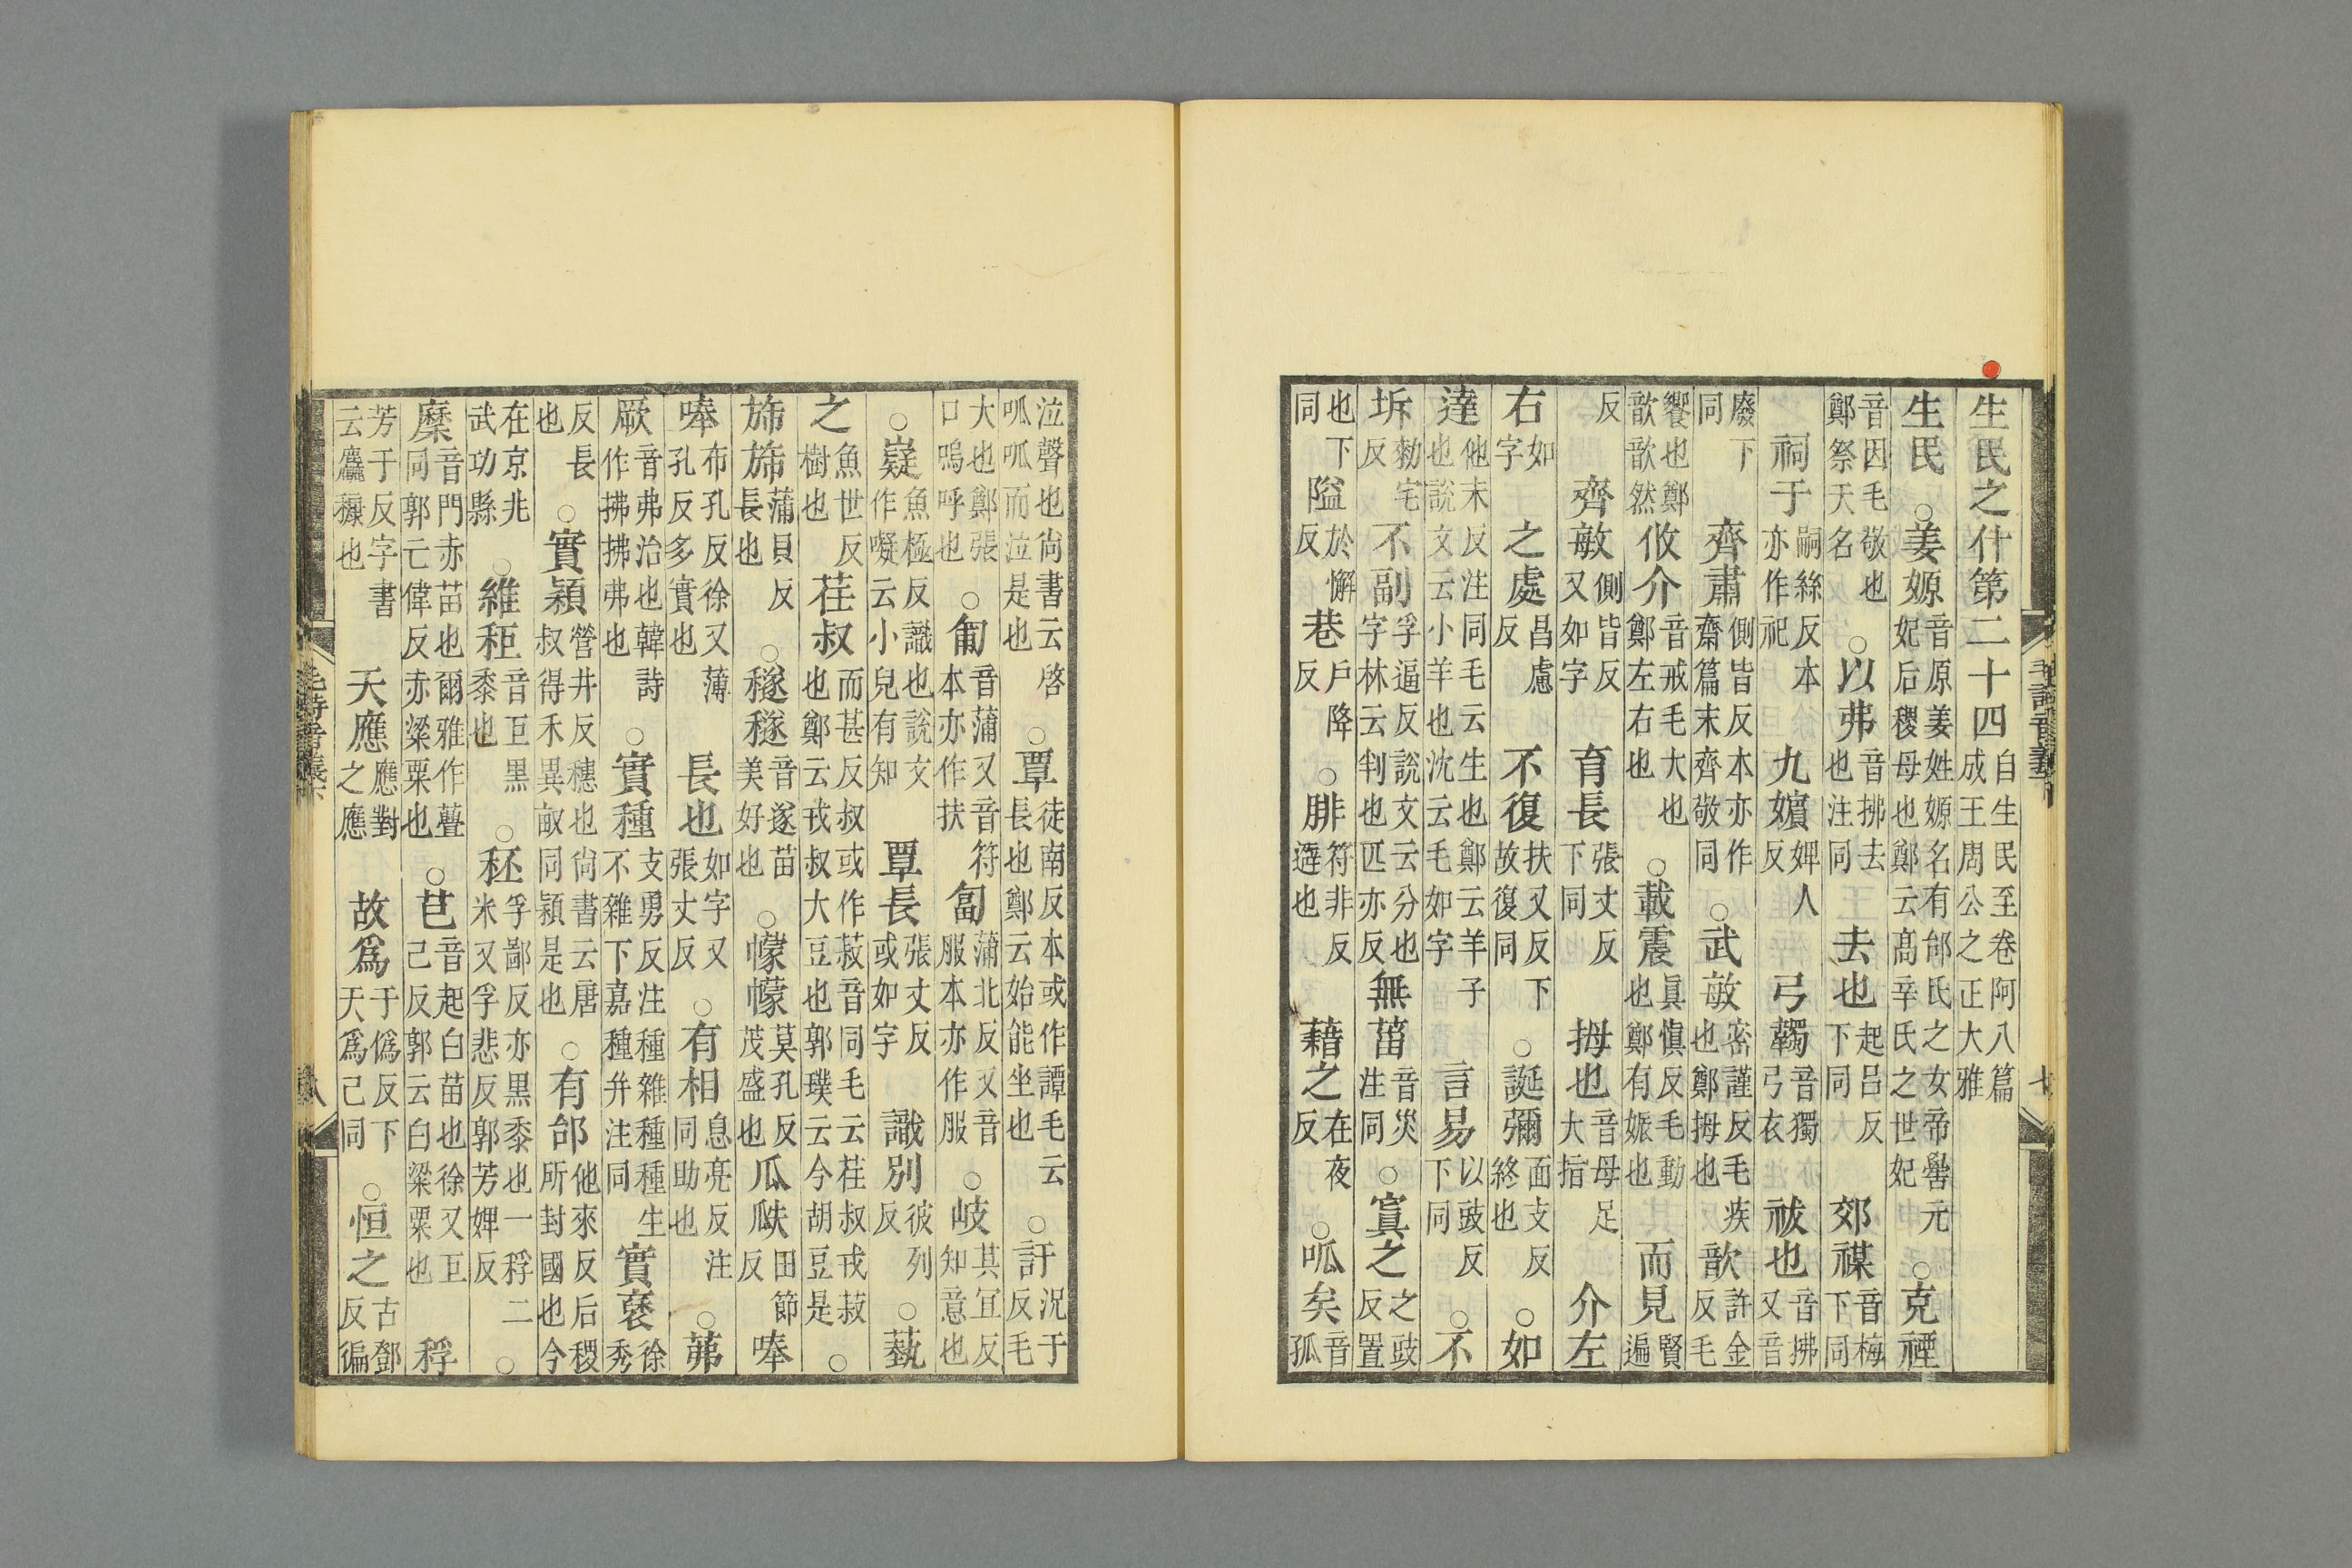 生民之什第二十四自生民至卷阿八篇成王周公之正大雅
生民○姜嫄音原姜姓嫄名有邰氏之女帝嚳元妃后稷母也鄭云高辛氏之世妃○克禋
音因毛敬也鄭祭天名○以弗音拂去也注同去也起呂反下同郊禖音梅下同
祠于嗣絲反本亦作祀九嬪婢人反弓韣音獨弓衣祓也音拂又音
廢下同齊肅側皆反本亦作齋篇末齊敬同○武敏密謹反毛疾也鄭拇也歆許金反毛
饗也鄭歆歆然攸介音戒毛大也鄭左右也○載震眞愼反毛動也鄭有娠也而見賢遍
反齊敏側皆反又如字育長張丈反下同拇也音母足大指介左
右如字之處昌慮反不復扶又反下故復同○誕彌面支反終也○如
達他末反注同毛云生也鄭云羊子也說文云小羊也沈云毛如字言易以豉反下同○不
坼勑宅反不副孚逼反說文云分也字林云判也匹亦反無菑音災注同○寘之之豉反置
也下同隘於懈反巷戶降反○腓符非反避也藉之在夜反○呱矣音孤
泣聲也尙書云啓呱呱而泣是也○覃徒南反本或作譚毛云長也鄭云始能坐也○訏況于反毛
大也鄭張口嗚呼也○匍音蒲又音符本亦作扶匐蒲北反又音服本亦作服○岐其宜反知意也
○嶷魚極反識也說文作嶷云小兒有知覃長張丈反或如字識別彼列反○蓺
之魚世反樹也荏叔而甚反叔或作菽音同毛云荏叔戎菽也鄭云戎叔大豆也郭璞云今胡豆是○
斾斾蒲貝反長也○穟穟音遂苗美好也○幪幪莫孔反茂盛也瓜瓞田節反唪
唪布孔反徐又薄孔反多實也長也如字又張丈反○有相息亮反注同助也○茀
厥音弗治也韓詩作拂拂弗也○實種支勇反注種雜種種生不雜下嘉種幷注同實褎徐秀
反長也○實穎營井反穗也尙書云唐叔得禾異畝同穎是也○有邰他來反后稷所封國也今
在京兆武功縣○維秬音巨黑黍也○秠孚鄙反亦黑黍也一稃二米又孚悲反郭芳婢反○
穈音門赤苗也爾雅作虋同郭亡偉反赤粱粟也○芑音起白苗也徐又巨己反郭云白粱粟也稃
芳于反字書云麤糠也天應應對之應故爲于僞反下天爲己同○恒之古鄧反徧